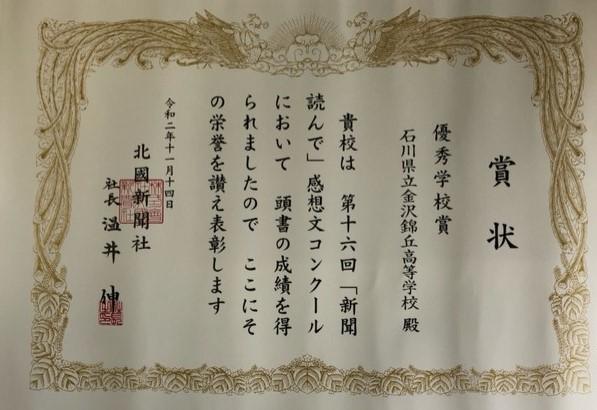 賞状
優秀学校賞
石川県立金沢錦丘高等学校 殿
貴校は 第十六回「新聞
読んで」感想文コンクール
において 頭書の成績を得
られましたので ここにそ
の栄誉を讃え表彰します
令和二年十一月十四日
北國新聞社
社長 温井 伸